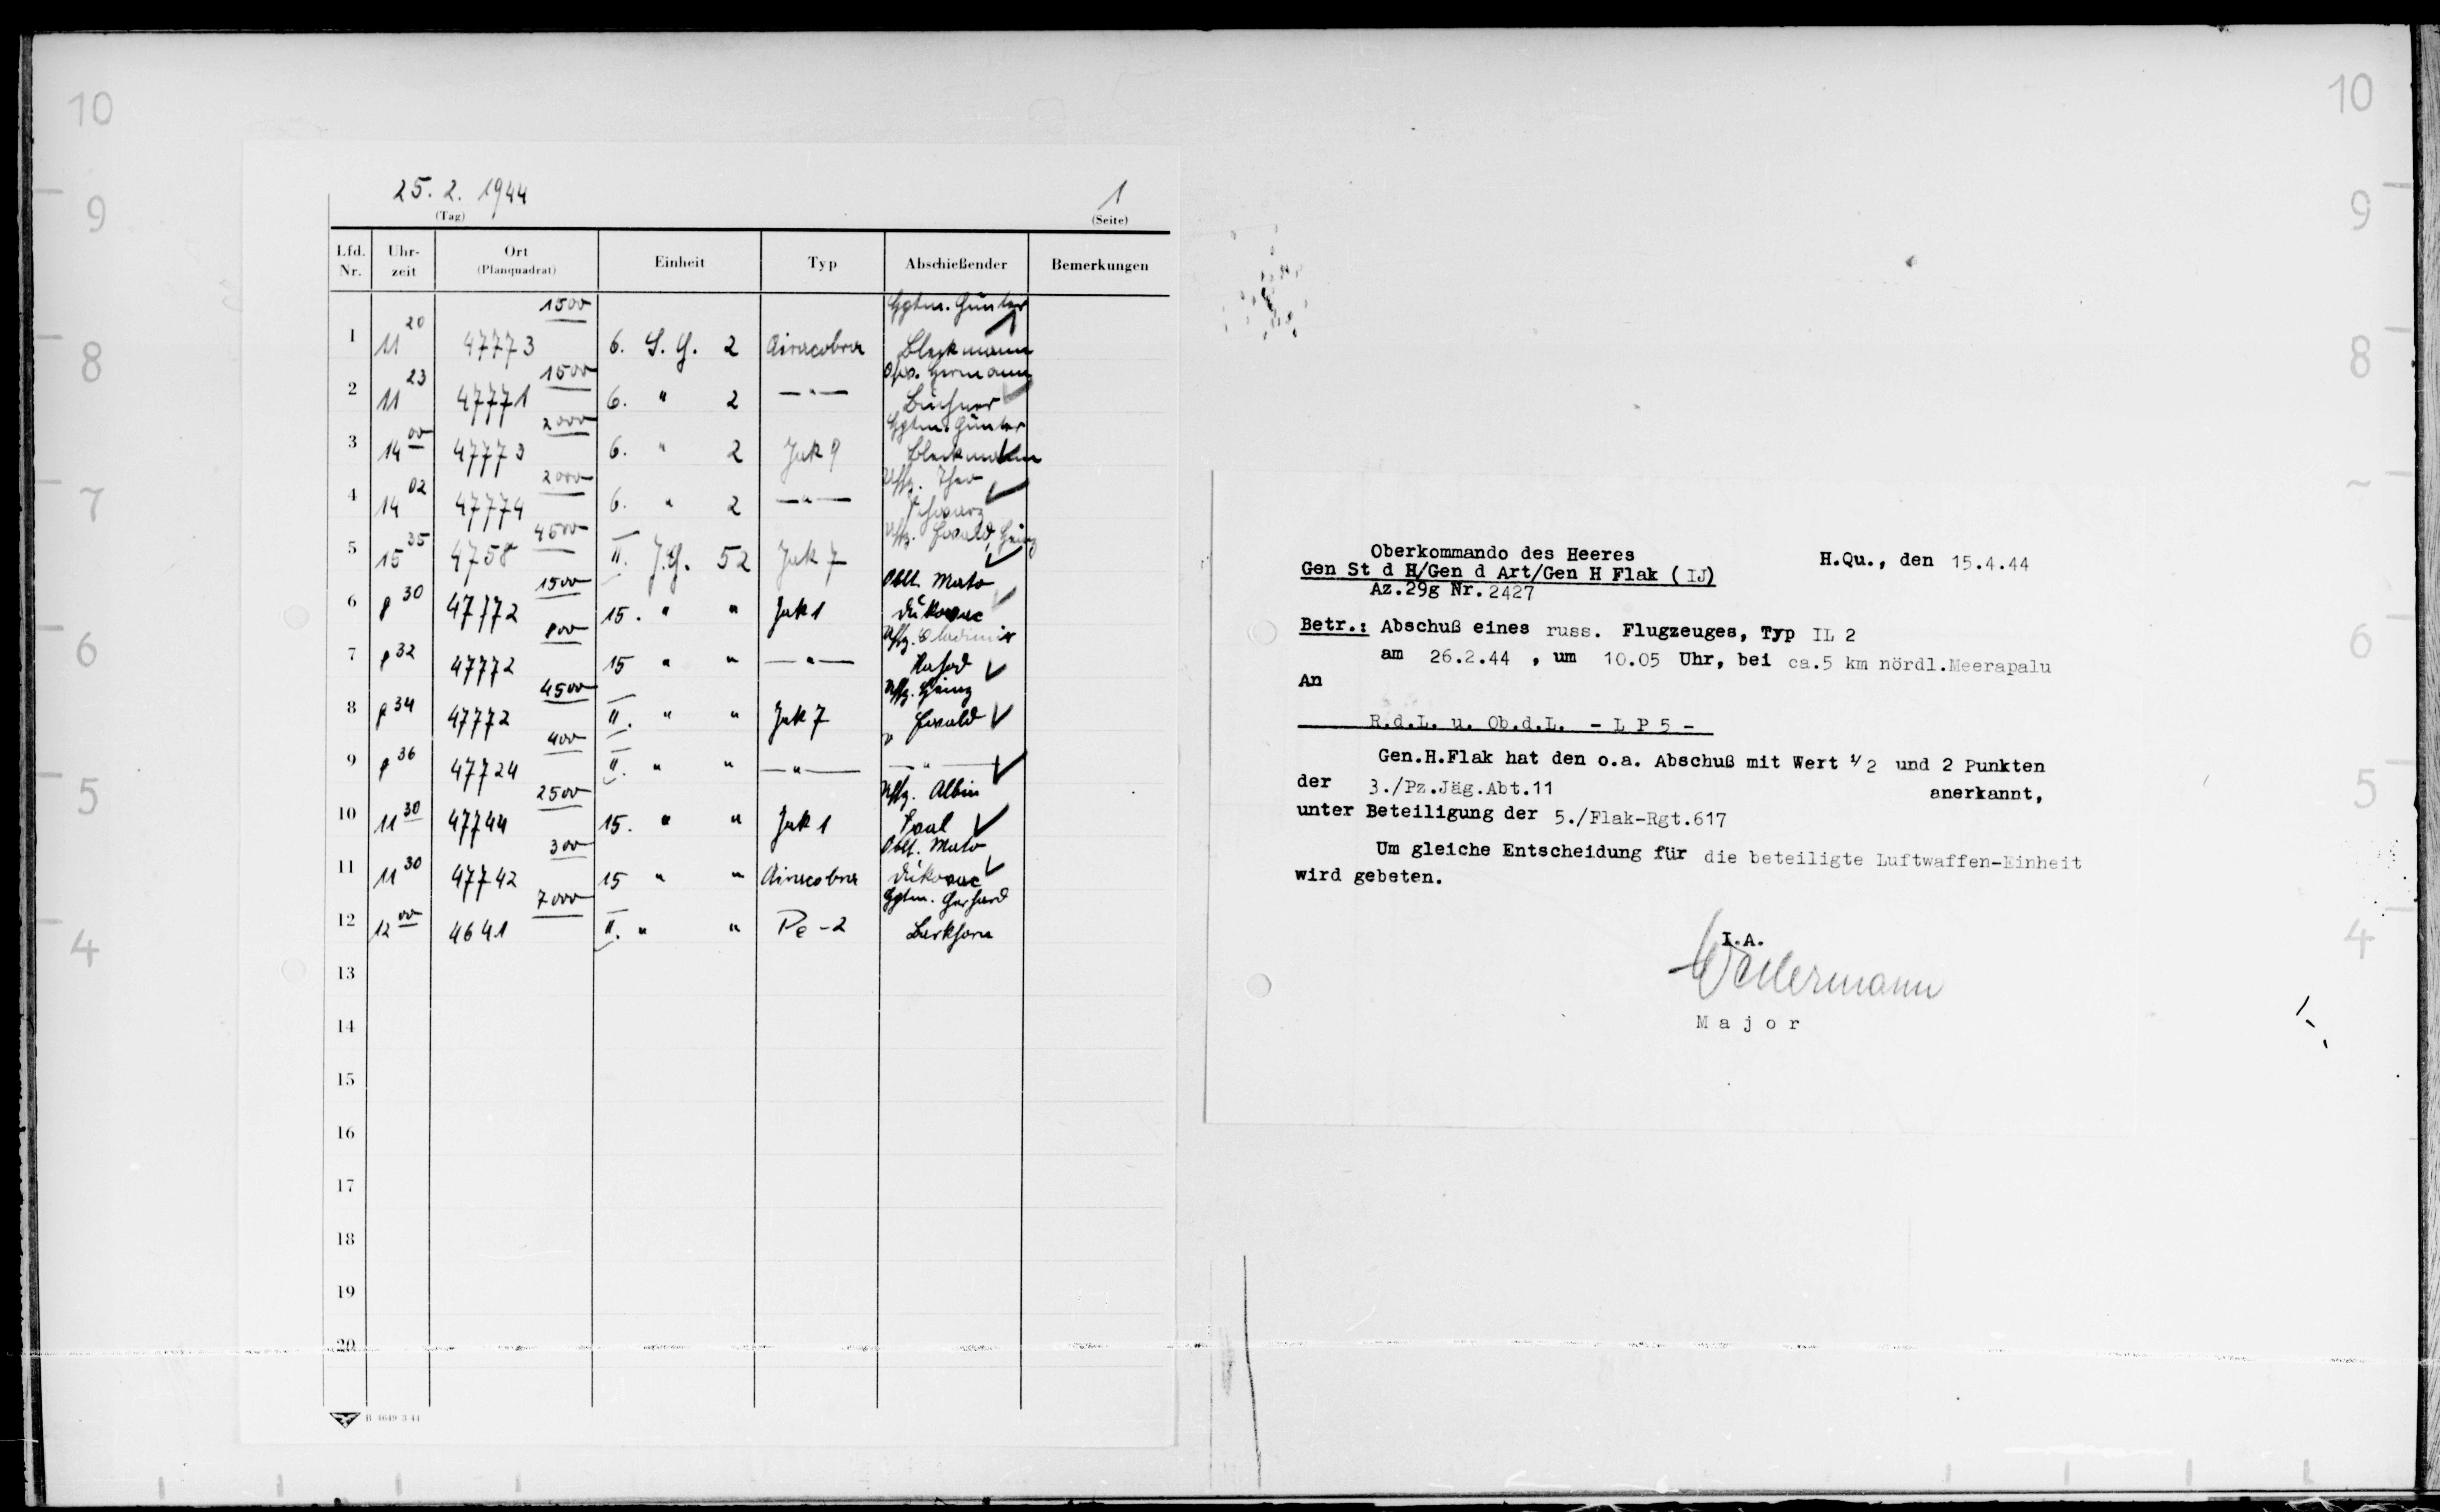 10
9
8
7
6
5
4
25. 2. 1944
(Tag)
1
(Seite)
Lfd. Nr. Uhrzeit Ort (Planquadrat) Einheit Typ Abschießender Bemerkungen
1500 Hptm. Günter
1 11 20 47773 6. S.G. 2 Airacobra Bleckmann
1500 Ofw. Hermann
2 11 23 47771 6. " 2 —"— Buchner
2000 Hptm. Günter
3 14 00 47773 6. " 2 Jak 9 Bleckmann
2000 Uffz. Theo
4 14 02 47774 6. " 2 —"— Schwarz
4500 Uffz. Ewald, Heinz
5 15 35 4758 II. J.G. 52 Jak 7
1500 Oblt. Mato
6 8 30 47772 15. " " Jak 1 Dukovac
800 Uffz. Vladimir
7 8 32 47772 15 " " —"—
4500 Uffz. Heinz
8 8 34 47772 II. " " Jak 7 Ewald
400
9 8 36 47724 II. " " —"— —"—
2500 Uffz. Albin
10 11 30 47744 15. " " Jak 1
300 Oblt. Mato
11 11 30 47742 15 " " Airacobra Dukovac
7000 Hptm. Gerhard
12 12 00 4641 II. " " Pe-2 Barkhorn
13
14
15
16
17
18
19
20
Oberkommando des Heeres
Gen St d H/Gen d Art/Gen H Flak (IJ)
Az.29g Nr.2427
H.Qu., den 15.4.44
Betr.: Abschuß eines russ. Flugzeuges, Typ IL 2
am 26.2.44 , um 10.05 Uhr, bei ca.5 km nördl.Meerapalu
An
R.d.L. u. Ob.d.L. - L P 5 -
Gen.H.Flak hat den o.a. Abschuß mit Wert 1/2 und 2 Punkten
der 3./Pz.Jäg.Abt.11 anerkannt,
unter Beteiligung der 5./Flak-Rgt.617
Um gleiche Entscheidung für die beteiligte Luftwaffen-Einheit
wird gebeten.
I.A.
Major
10
9
8
6
5
4